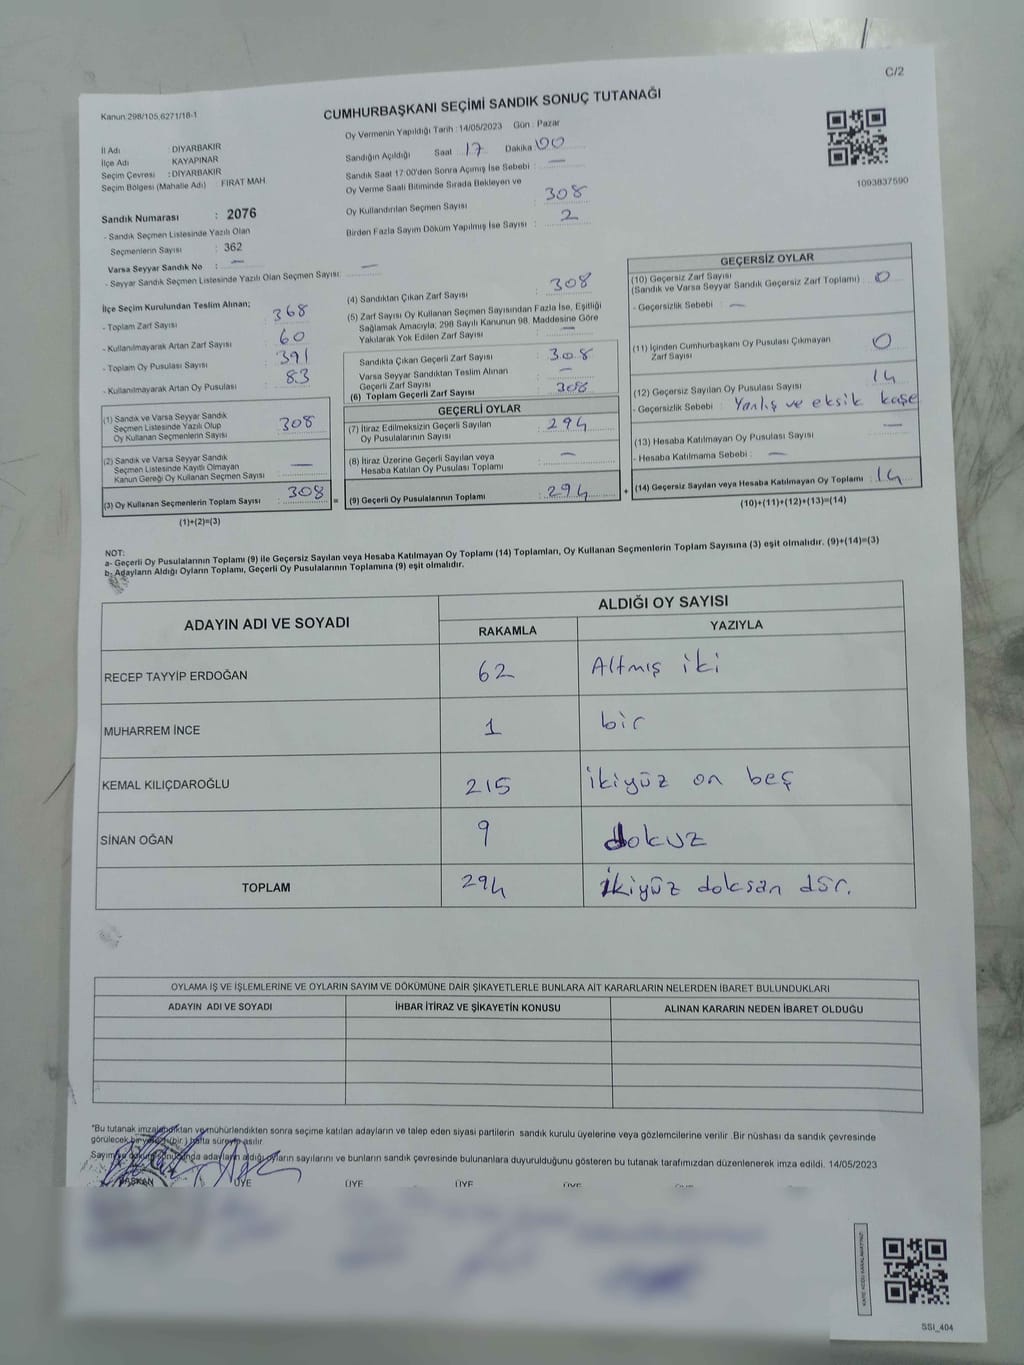 C/2
Kanun:298/105,6271/18-1
CUMHURBAŞKANI SEÇİMİ SANDIK SONUÇ TUTANAĞI
Oy Vermenin Yapıldığı Tarih : 14/05/2023 Gün : Pazar
İl Adı : DİYARBAKIR
İlçe Adı : KAYAPINAR
Seçim Çevresi : DİYARBAKIR
Seçim Bölgesi (Mahalle Adı) : FIRAT MAH.
Sandık Numarası : 2076
- Sandık Seçmen Listesinde Yazılı Olan
Seçmenlerin Sayısı : 362
Varsa Seyyar Sandık No : —
- Seyyar Sandık Seçmen Listesinde Yazılı Olan Seçmen Sayısı: —
Sandığın Açıldığı Saat : 17 Dakika : 00
Sandık Saat 17:00'den Sonra Açımış İse Sebebi : —
Oy Verme Saati Bitiminde Sırada Bekleyen ve
Oy Kullandırılan Seçmen Sayısı : 308
Birden Fazla Sayım Döküm Yapılmış İse Sayısı : 2
1093837590
İlçe Seçim Kurulundan Teslim Alınan;
- Toplam Zarf Sayısı : 368
- Kullanılmayarak Artan Zarf Sayısı : 60
- Toplam Oy Pusulası Sayısı : 391
- Kullanılmayarak Artan Oy Pusulası : 83
(1) Sandık ve Varsa Seyyar Sandık
Seçmen Listesinde Yazılı Olup
Oy Kullanan Seçmenlerin Sayısı : 308
(2) Sandık ve Varsa Seyyar Sandık
Seçmen Listesinde Kayıtlı Olmayan
Kanun Gereği Oy Kullanan Seçmen Sayısı : —
(3) Oy Kullanan Seçmenlerin Toplam Sayısı : 308 =
(1)+(2)=(3)
(4) Sandıktan Çıkan Zarf Sayısı : 308
(5) Zarf Sayısı Oy Kullanan Seçmen Sayısından Fazla İse, Eşitliği
Sağlamak Amacıyla, 298 Sayılı Kanunun 98. Maddesine Göre
Yakılarak Yok Edilen Zarf Sayısı : —
Sandıkta Çıkan Geçerli Zarf Sayısı : 308
Varsa Seyyar Sandıktan Teslim Alınan
Geçerli Zarf Sayısı : —
(6) Toplam Geçerli Zarf Sayısı : 308
GEÇERLİ OYLAR
(7) İtiraz Edilmeksizin Geçerli Sayılan
Oy Pusulalarının Sayısı : 294
(8) İtiraz Üzerine Geçerli Sayılan veya
Hesaba Katılan Oy Pusulası Toplamı : —
(9) Geçerli Oy Pusulalarının Toplamı : 294 +
GEÇERSİZ OYLAR
(10) Geçersiz Zarf Sayısı
(Sandık ve Varsa Seyyar Sandık Geçersiz Zarf Toplamı) : 0
- Geçersizlik Sebebi : —
(11) İçinden Cumhurbaşkanı Oy Pusulası Çıkmayan
Zarf Sayısı : 0
(12) Geçersiz Sayılan Oy Pusulası Sayısı : 14
- Geçersizlik Sebebi : Yanlış ve eksik kaşe
(13) Hesaba Katılmayan Oy Pusulası Sayısı : —
- Hesaba Katılmama Sebebi : —
(14) Geçersiz Sayılan veya Hesaba Katılmayan Oy Toplamı : 14
(10)+(11)+(12)+(13)=(14)
NOT:
a- Geçerli Oy Pusulalarının Toplamı (9) ile Geçersiz Sayılan veya Hesaba Katılmayan Oy Toplamı (14) Toplamları, Oy Kullanan Seçmenlerin Toplam Sayısına (3) eşit olmalıdır. (9)+(14)=(3)
b- Adayların Aldığı Oyların Toplamı, Geçerli Oy Pusulalarının Toplamına (9) eşit olmalıdır.
ADAYIN ADI VE SOYADI ALDIĞI OY SAYISI
RAKAMLA YAZIYLA
RECEP TAYYİP ERDOĞAN 62 Altmış iki
MUHARREM İNCE 1 bir
KEMAL KILIÇDAROĞLU 215 ikiyüz on beş
SİNAN OĞAN 9 dokuz
TOPLAM 294 ikiyüz doksan dör.
OYLAMA İŞ VE İŞLEMLERİNE VE OYLARIN SAYIM VE DÖKÜMÜNE DAİR ŞİKAYETLERLE BUNLARA AİT KARARLARIN NELERDEN İBARET BULUNDUKLARI
ADAYIN ADI VE SOYADI İHBAR İTİRAZ VE ŞİKAYETİN KONUSU ALINAN KARARIN NEDEN İBARET OLDUĞU
"Bu tutanak imzalandıktan ve mühürlendikten sonra seçime katılan adayların ve talep eden siyasi partilerin sandık kurulu üyelerine veya gözlemcilerine verilir .Bir nüshası da sandık çevresinde
görülecek bir yere (bir) hafta süreyle asılır.
Sayım ve döküm sonucunda adayların aldığı oyların sayılarını ve bunların sandık çevresinde bulunanlara duyurulduğunu gösteren bu tutanak tarafımızdan düzenlenerek imza edildi. 14/05/2023
BAŞKAN ÜYE ÜYE ÜYE ÜYE
SSİ_404